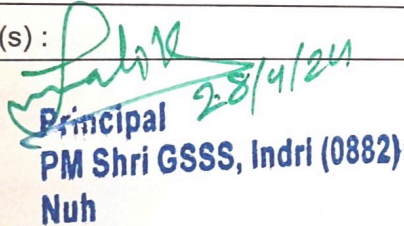 (s) :
28/4/24
Principal
PM Shri GSSS, Indri (0882)
Nuh